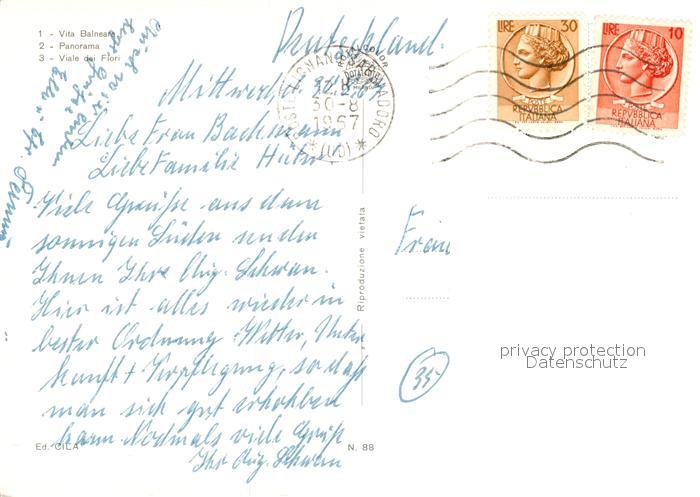 1 - Vita Balneare
2 - Panorama
3 - Viale dei Fiori
Deutschland.
LIRE 30
POSTE
REPVBBLICA
ITALIANA
LIRE 10
POSTE
REPVBBLICA
ITALIANA
30-8
1967
Mittwoch
Liebe Frau Bachmann
Liebe Familie
Viele Grüße aus dem
sonnigen Süden senden
Ihnen Ihre Aug. Schwan.
Hier ist alles wieder in
bester Ordnung. Wetter, Unter
kunft + Verpflegung, so daß
man sich gut erhohlen
kann. Nochmals viele Grüße
Ihre Aug. Schwan
Auch wir
Grüße
Frau
35
Riproduzione vietata
Ed. CILA
N. 88
privacy protection
Datenschutz